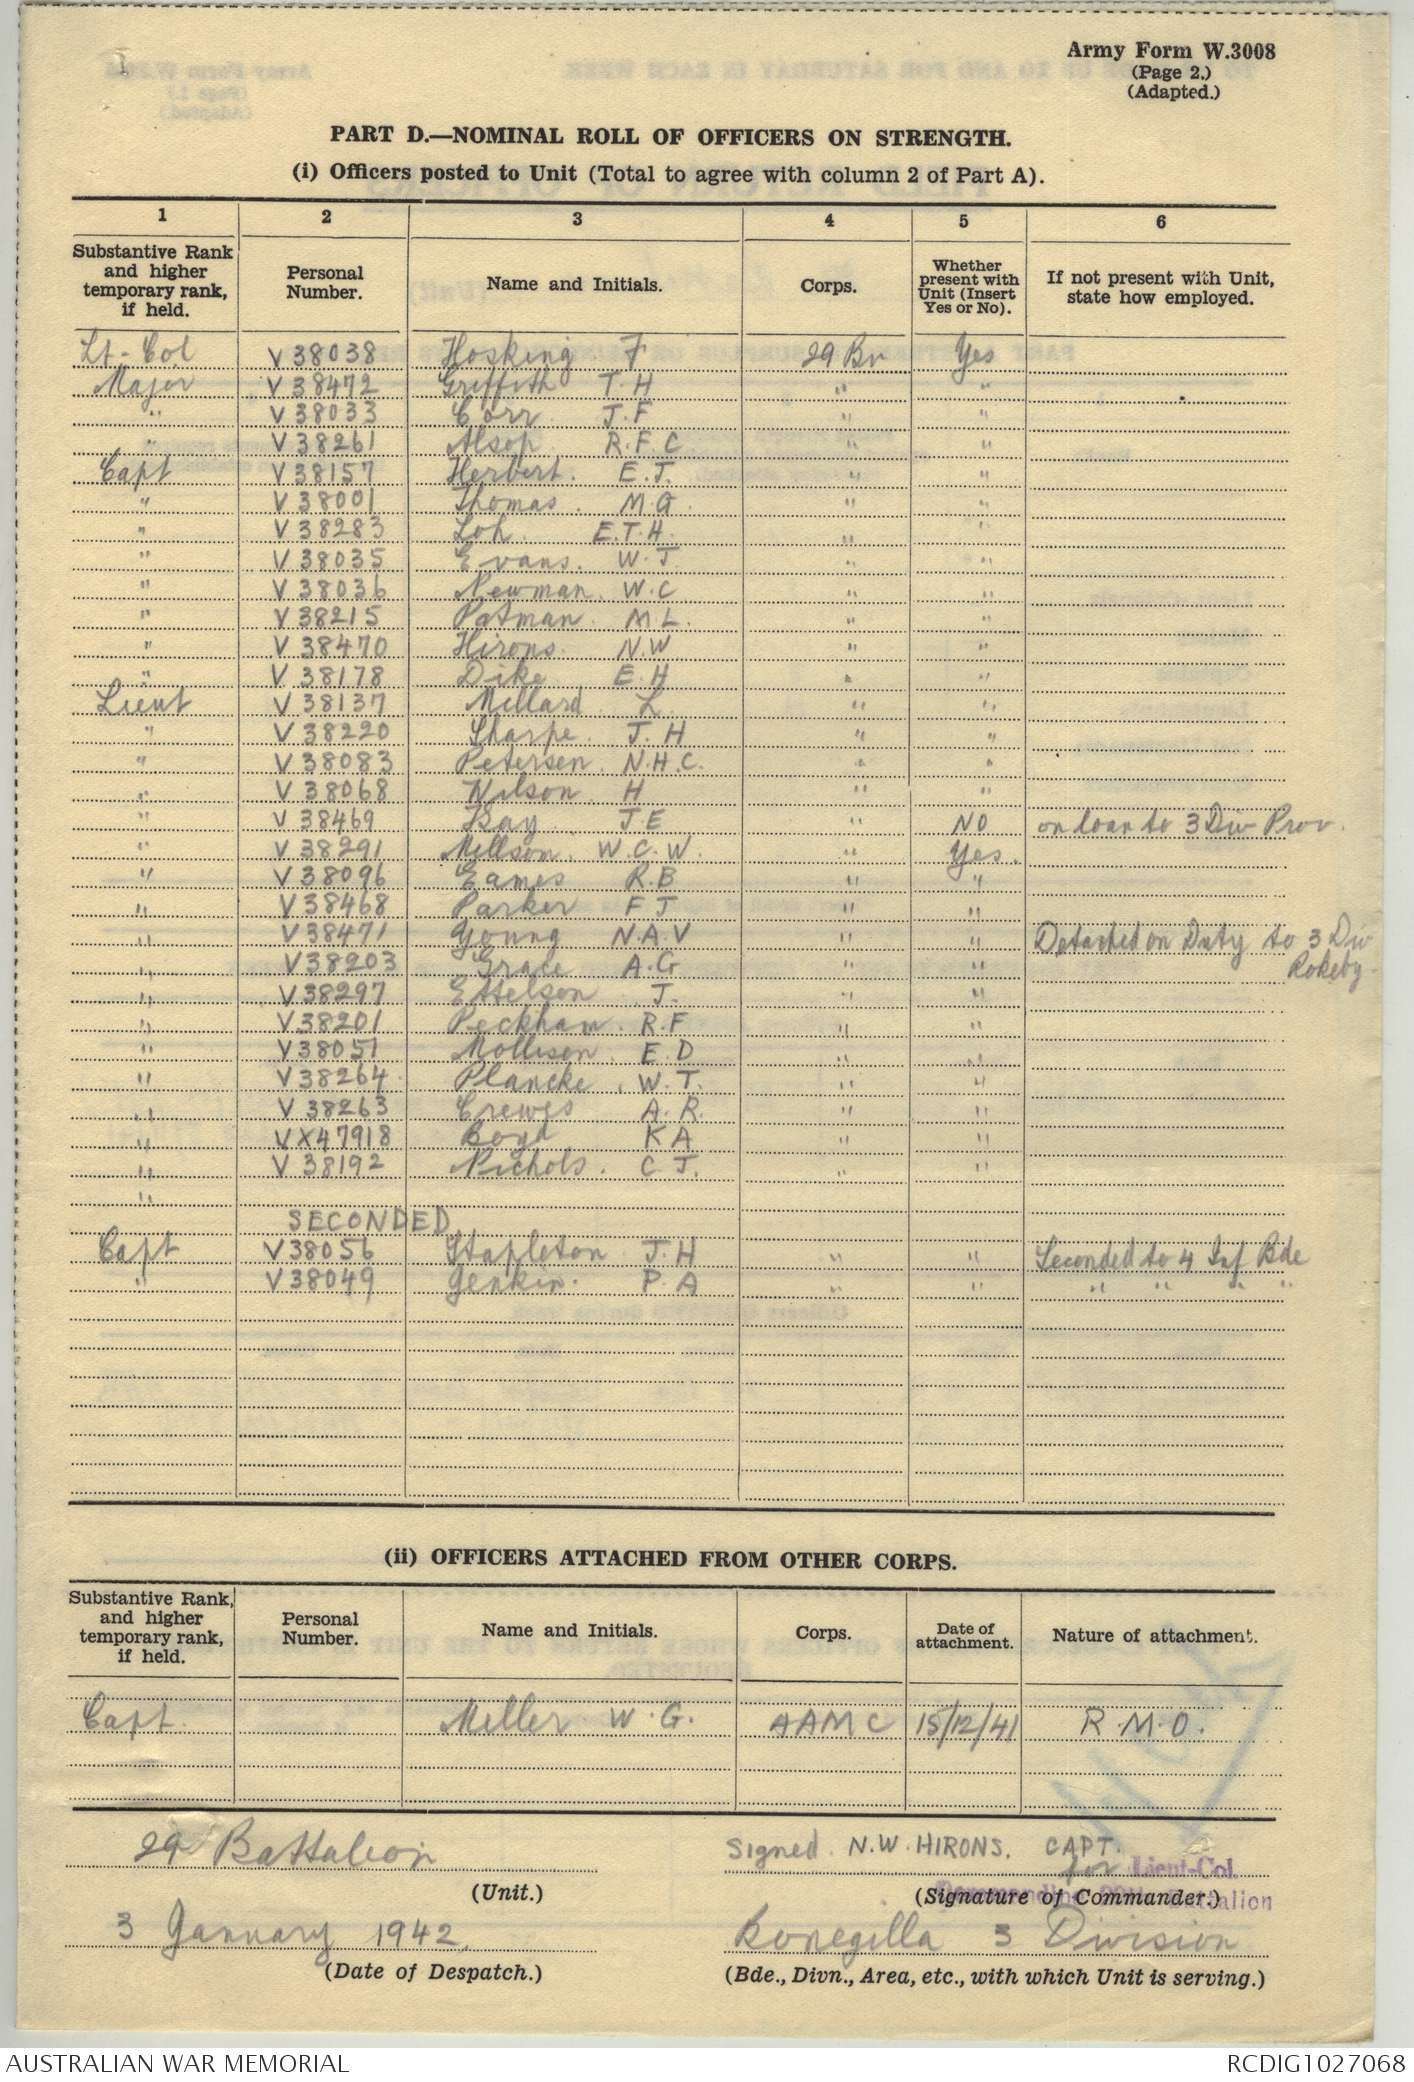 Army Form W.3008
(Page 2.)
(Adapted.)
PART D.—NOMINAL ROLL OF OFFICERS ON STRENGTH.
(i) Officers posted to Unit (Total to agree with column 2 of Part A).
1 2 3 4 5 6
Substantive Rank and higher temporary rank, if held. Personal Number. Name and Initials. Corps. Whether present with Unit (Insert Yes or No). If not present with Unit, state how employed.
Lt-Col V38038 Hosking F 29 Bn Yes
Major V38472 Griffith T.H " "
" V38033 Corr J.F " "
" V38261 Alsop R.F.C " "
Capt V38157 Herbert. E.J. " "
" V38001 Thomas. M.G. " "
" V38283 Loh. E.T.H. " "
" V38035 Evans. W.J. " "
" V38036 Newman. W.C " "
" V38215 Patman. M L. " "
" V38470 Hirons. N.W. " "
" V 38178 Dike E.H " "
Lieut V 38137 Millard L. " "
" V 38220 Sharpe. J.H " "
" V 38083 Petersen. N.H.C. " "
" V 38068 Nilson. H " "
" V 38469 Bay. J.E " NO on loan to 3 Div Prov.
" V 38291 Millson. W.C.W. " Yes.
" V 38096 Eames R.B " "
" V 38468 Parker F J " "
" V38471 Young N.A.V " " Detached on Duty to 3 Div
" V38203 Grace A.G " " Rokeby.
" V38297 Ettelson J. " "
" V38201 Peckham. R.F " "
" V38051 Mollison. E.D " "
" V38264 Plancke. W.T. " "
" V 38263 Crewes A.R. " "
" VX47918 Boyd K A " "
" V 38192 Nichols. C J. " "
"
SECONDED
Capt V38056 Stapleton J.H " " Seconded to 4 Inf Bde
" V38049 Jenkin. P.A " " " " " "
(ii) OFFICERS ATTACHED FROM OTHER CORPS.
Substantive Rank, and higher temporary rank, if held. Personal Number. Name and Initials. Corps. Date of attachment. Nature of attachment.
Capt. Miller W.G. AAMC 15/12/41 R.M.O.
29 Battalion
(Unit.)
Signed. N.W. HIRONS. CAPT.
for Lieut-Col.
Commanding 29th Battalion
(Signature of Commander.)
3 January 1942
(Date of Despatch.)
Bonegilla 3 Division
(Bde., Divn., Area, etc., with which Unit is serving.)
AUSTRALIAN WAR MEMORIAL
RCDIG1027068